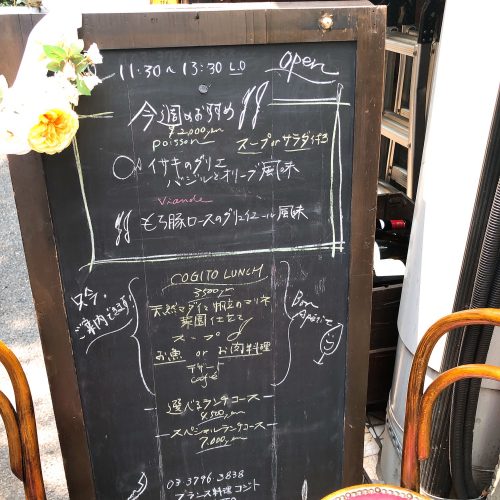 11:30～13:30 LO
Open
今週のお勧め
¥2,000yen
poisson
スープ or サラダ付き
イサキのグリエ
バジルとオリーブ風味
Viande
もち豚ロースのグリエ
風味
只今、
ご案内できます!
COGITO LUNCH
3500yen
天然マダイと帆立のマリネ
菜園仕立て
スープ
お魚 or お肉料理
デザート
café
Bon
Appétit
選べるランチコース
4,500yen
スペシャルランチコース
7,000yen
03.3796.3838
フランス料理コジト